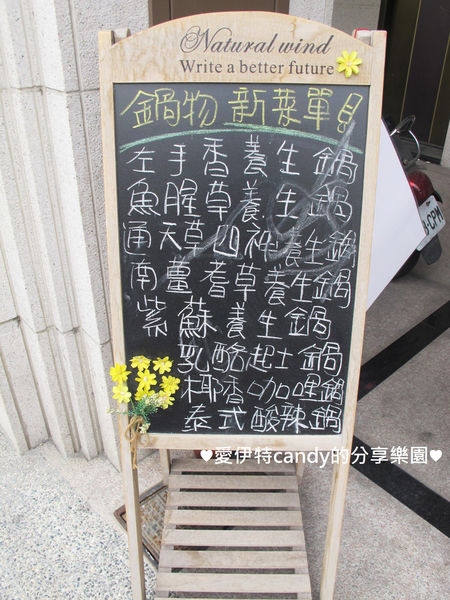 Natural wind
Write a better future
鍋物 新菜單
左手香養生鍋
魚腥草養生鍋
通天草四神養生鍋
南薑耆草養生鍋
紫蘇養生鍋
乳酪起士鍋
椰香咖哩鍋
泰式酸辣鍋
♥愛伊特candy的分享樂園♥